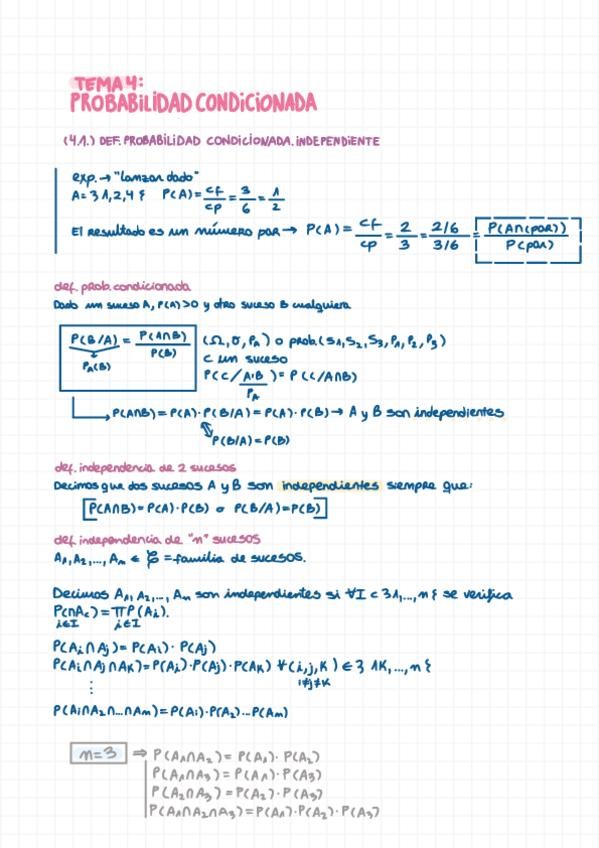 TEMA 4:
PROBABILIDAD CONDICIONADA
(4.1.) DEF. PROBABILIDAD CONDICIONADA. INDEPENDIENTE
exp. → "Lanzar dado"
A = {1,2,4} P(A) = cf/cp = 3/6 = 1/2
El resultado es un número par → P(A) = cf/cp = 2/3 = 2/6 / 3/6 = P(A∩(par)) / P(par)
def. prob. condicionada
Dado un suceso A, P(A)>0 y otro suceso B cualquiera
P(B/A) = P(A∩B) / P(B) (Ω, σ, PA) o prob. (S1, S2, S3, P1, P2, P3)
PA(B) C un suceso
P(C/A∩B) = P(C/A∩B)
PA
P(A∩B) = P(A)·P(B/A) = P(A)·P(B) → A y B son independientes
P(B/A) = P(B)
def. independencia de 2 sucesos
Decimos que dos sucesos A y B son independientes siempre que:
[P(A∩B) = P(A)·P(B) o P(B/A) = P(B)]
def. independencia de "n" sucesos
A1, A2, ..., An ∈ 𝒞 = familia de sucesos.
Decimos A1, A2, ..., An son independientes si ∀I ⊂ {1, ..., n} se verifica
P(∩Ai) = ΠP(Ai).
i∈I i∈I
P(Ai∩Aj) = P(Ai)·P(Aj)
P(Ai∩Aj∩AK) = P(Ai)·P(Aj)·P(AK) ∀(i,j,K) ∈ {1K, ..., n}
i≠j≠K
⋮
P(Ai∩A2∩...∩An) = P(Ai)·P(A2)...P(An)
n=3 ⇒ P(A1∩A2) = P(A1)·P(A2)
P(A1∩A3) = P(A1)·P(A3)
P(A2∩A3) = P(A2)·P(A3)
P(A1∩A2∩A3) = P(A1)·P(A2)·P(A3)